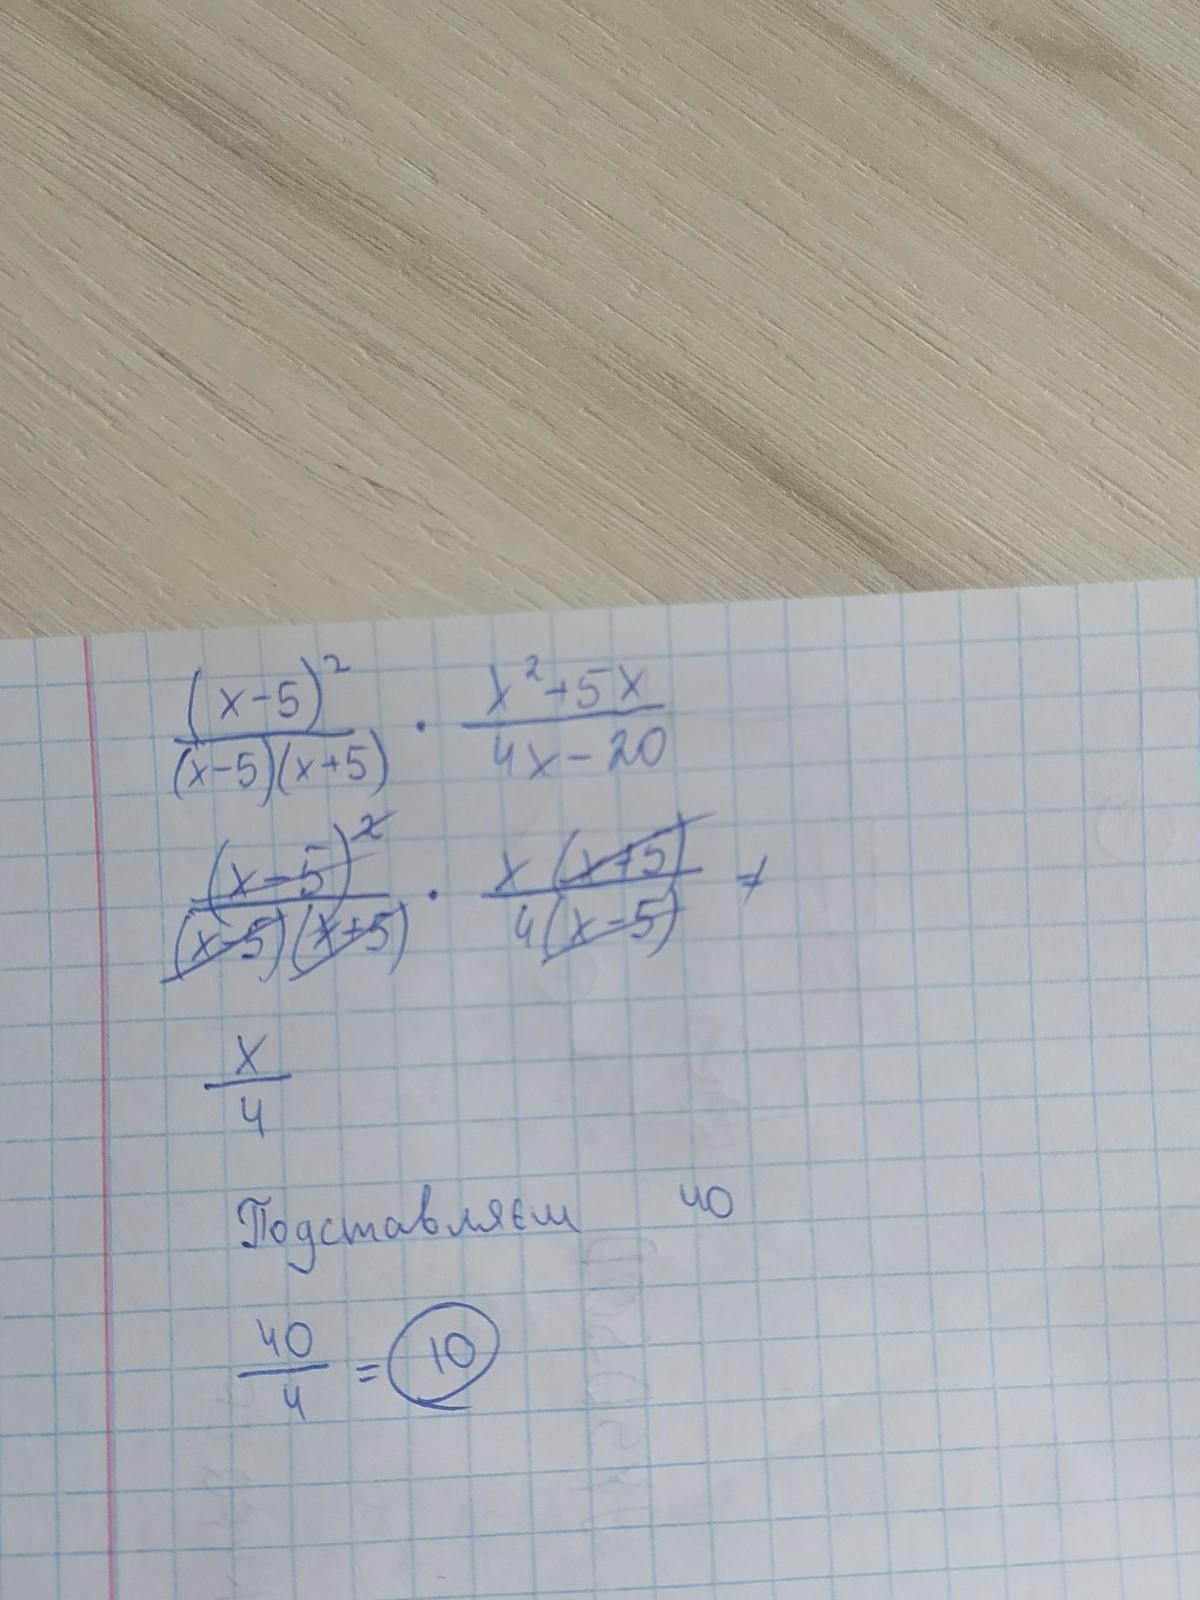 (x-5)² / (x-5)(x+5) · x²+5x / 4x-20
(x-5)² / (x-5)(x+5) · x(x+5) / 4(x-5) =
x / 4
Подставляєм 40
40 / 4 = 10